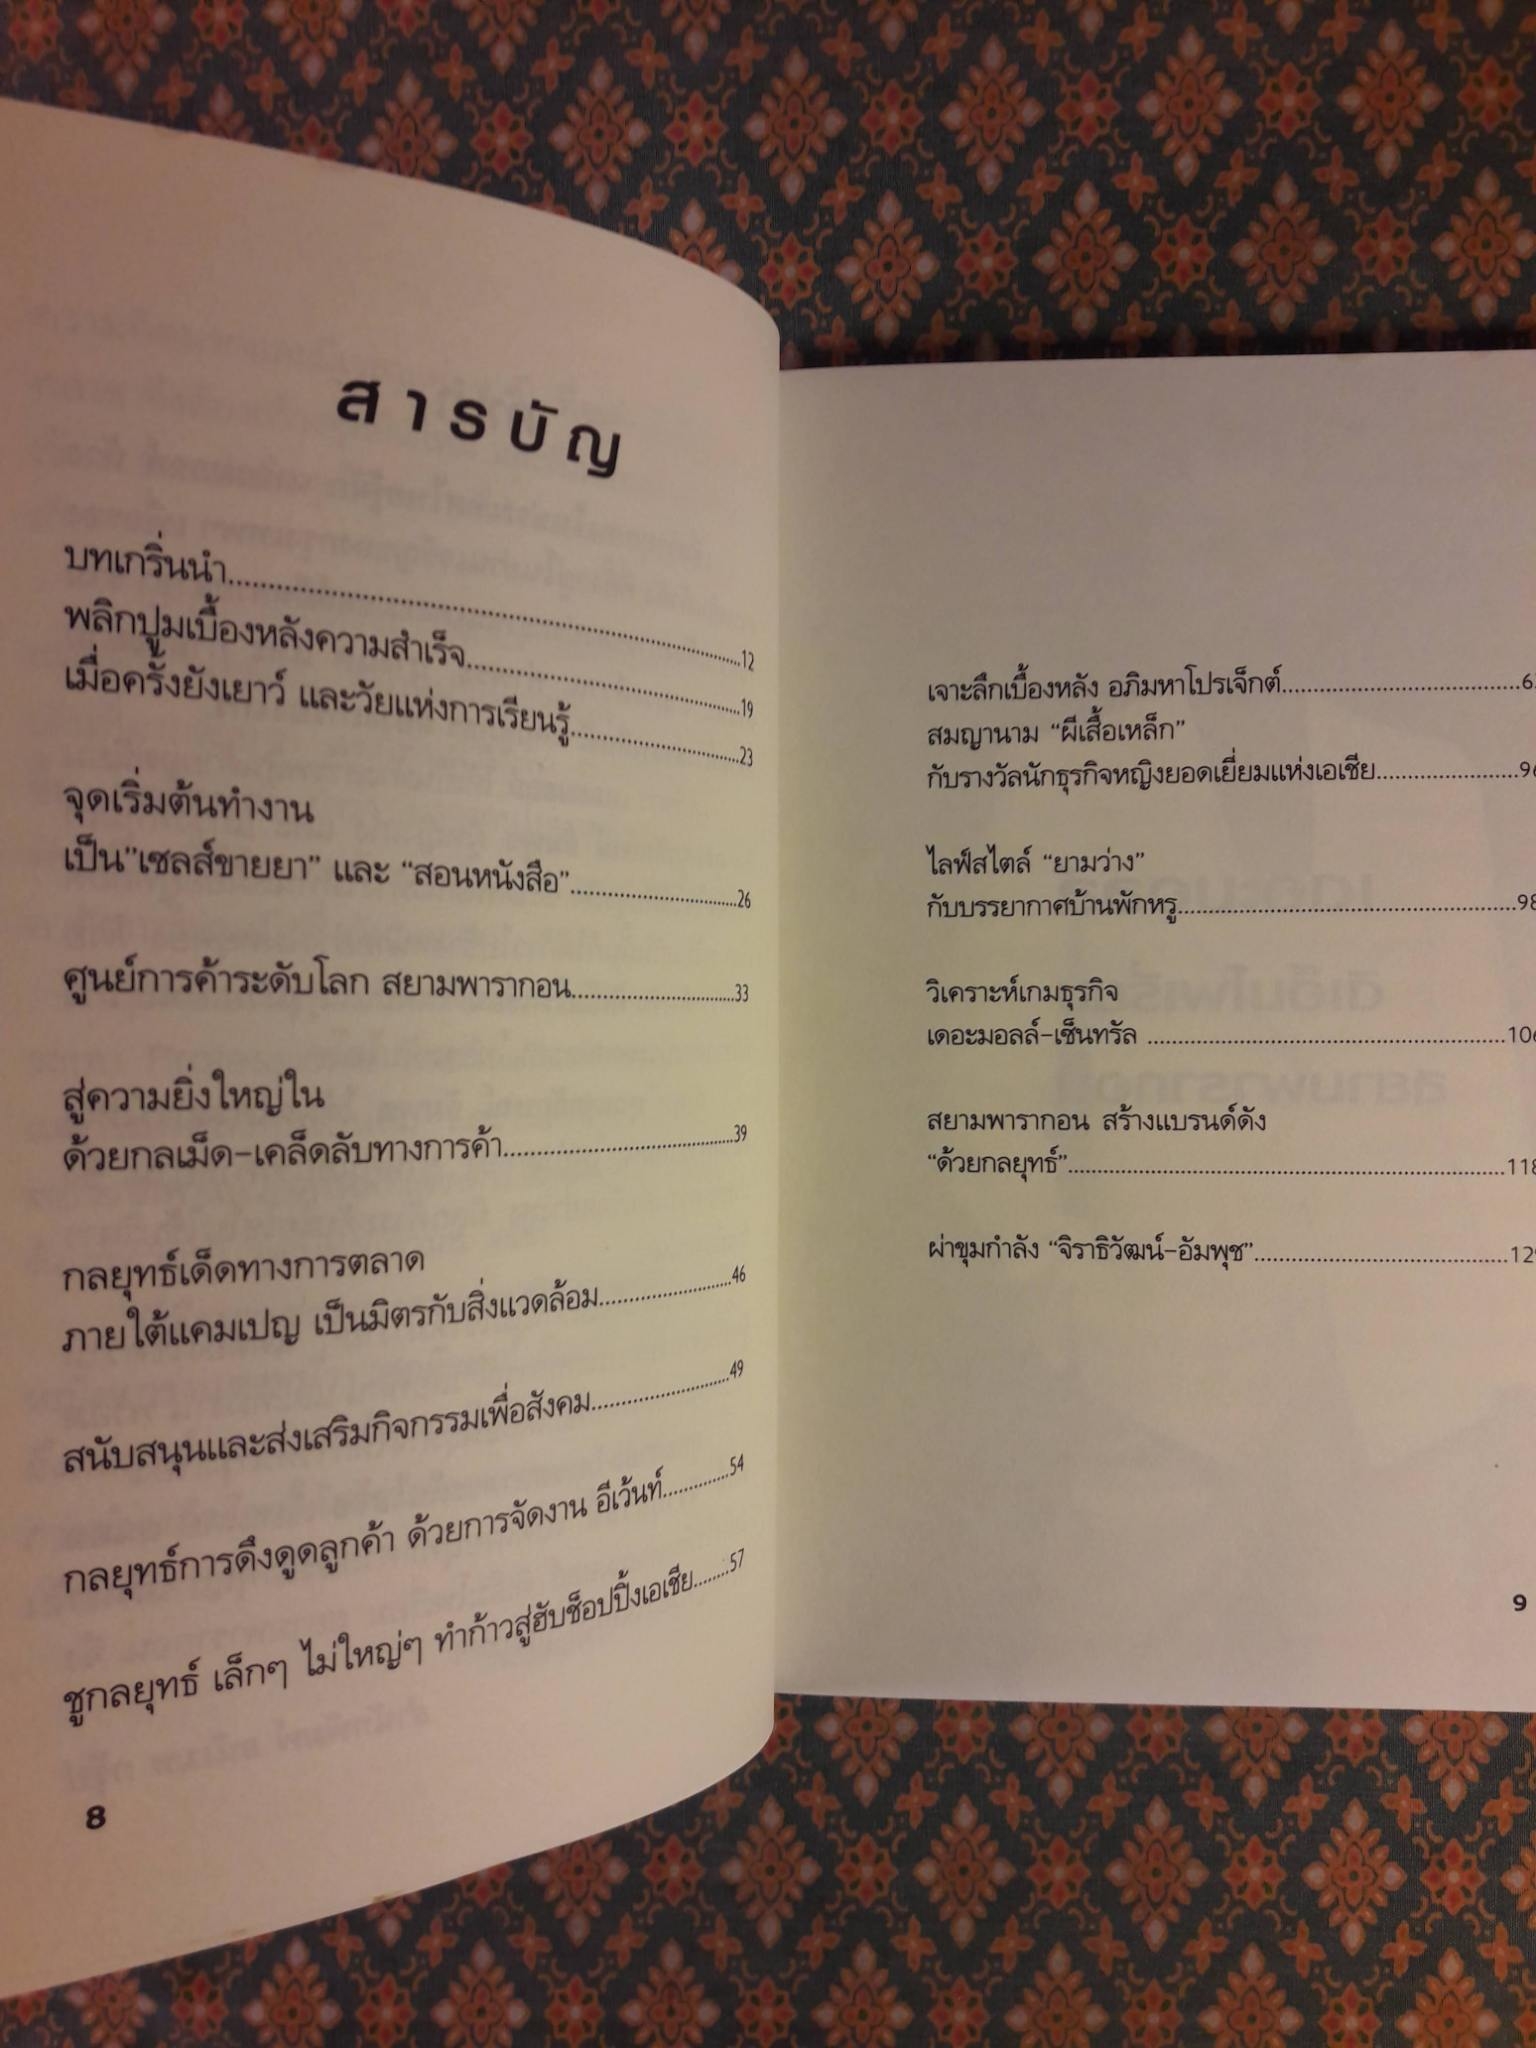 สารบัญ
บทเกริ่นนำ....................12
พลิกปูมเบื้องหลังความสำเร็จ....................19
เมื่อครั้งยังเยาว์ และวัยแห่งการเรียนรู้....................23
จุดเริ่มต้นทำงาน
เป็น"เซลส์ขายยา" และ "สอนหนังสือ"....................26
ศูนย์การค้าระดับโลก สยามพารากอน....................33
สู่ความยิ่งใหญ่ใน
ด้วยกลเม็ด-เคล็ดลับทางการค้า....................39
กลยุทธ์เด็ดทางการตลาด
ภายใต้แคมเปญ เป็นมิตรกับสิ่งแวดล้อม....................46
สนับสนุนและส่งเสริมกิจกรรมเพื่อสังคม....................49
กลยุทธ์การดึงดูดลูกค้า ด้วยการจัดงาน อีเว้นท์....................54
ชูกลยุทธ์ เล็กๆ ไม่ใหญ่ๆ ทำก้าวสู่ฮับช็อปปิ้งเอเชีย........57
8
เจาะลึกเบื้องหลัง อภิมหาโปรเจ็กต์....................
สมญานาม "ผีเสื้อเหล็ก"
กับรางวัลนักธุรกิจหญิงยอดเยี่ยมแห่งเอเชีย....................96
ไลฟ์สไตล์ "ยามว่าง"
กับบรรยากาศบ้านพักหรู....................98
วิเคราะห์เกมธุรกิจ
เดอะมอลล์-เซ็นทรัล ....................106
สยามพารากอน สร้างแบรนด์ดัง
"ด้วยกลยุทธ์"....................118
ผ่าขุมกำลัง "จิราธิวัฒน์-อัมพุช"....................129
9